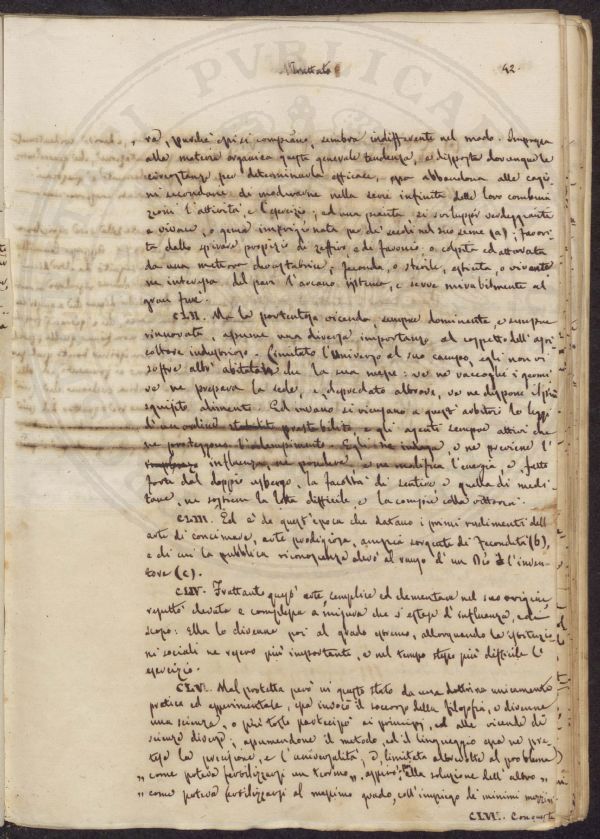 42.
ra, purchè essi si compiano, sembra indifferente nel modo. Impressa
alla materia organica questa generale tendenza, e disposte dovunque le
circostanze per determinarla efficace, essa abbandona alle cagio
ni secondarie di modurarne nella serie infinita delle loro combina
zioni l'attività, e l'esercizio; ed una pianta si sviluppi verdeggiante
e vivace, o gema imprigionata per de' secoli nel suo seme (a); favori
ta dallo spirare propizio di zeffiro, e di favonio o colpita ed atterrata
da una meteora devastatrice; feconda, o sterile, estinta, o vivente
ne interessa del pari l'arcano sistema, e serve mirabilmente al
gran fine.
CLII. Ma la portentosa vicenda, sempre dominante, e sempre
rinnovata, assume una diversa importanza al cospetto dell'agri
coltore industrioso. Limitato l'Universo al suo campo, egli non vi
soffre altri abitatori che la sua messe: ve ne raccoglie i germi
ve ne prepara la sede, e, depredato altrove, ve ne dispone il più
squisito alimento. Ed invano si vieggano a quest'arbitrio le leggi
d'un ordine stabilito prestabilito, e gli agenti sempre attivi che
ne proteggono l'adempimento. Egli ne indaga, e ne previene l'
influenza, ne pondera, e ne modifica l'energia, e, fatto
forte dal doppio usbergo, la facoltà di sentire e quella di medi
tare, ne sostiene la lotta difficile, e la compie colla vittoria.
CLIII. Ed è da quest'epoca che datano i primi rudimenti dell'
arte di concimare, arte prodigiosa, amplia sorgente di fecondità (b),
e di cui la pubblica riconoscenza elevò al rango d'un Dio l'inven
tore (c).
CLIV. Frattanto quest'arte, semplice ed elementare nel suo origine,
repultò elevata e complessa a misura che s'estese d'influenza, e di
scopo: Ella lo divenne poi al grado estremo, allorquando le istituzio
ni sociali ne resero più importante, e nel tempo stesso più difficile l'
esercizio.
CLV. Mal protetta però in questo stato da una dottrina unicamente
pratica ed esperimentale, essa invocò il soccorso della filosofia, e divenne
una scienza, o più tosto partecipò ai principj, ed alle vicende di
scienze diverse; assumendone il metodo, ed il linguaggio essa ne pre
tese la precisione, e l'universalità, e limitata altrevolte al problema
„ come poteva fertilizzarsi un terreno „ aspirò alla soluzione dell'altro „
„ come poteva fertilizzarsi al massimo grado, coll'impiego de' minimi mezzi „
CLVI. Consueta